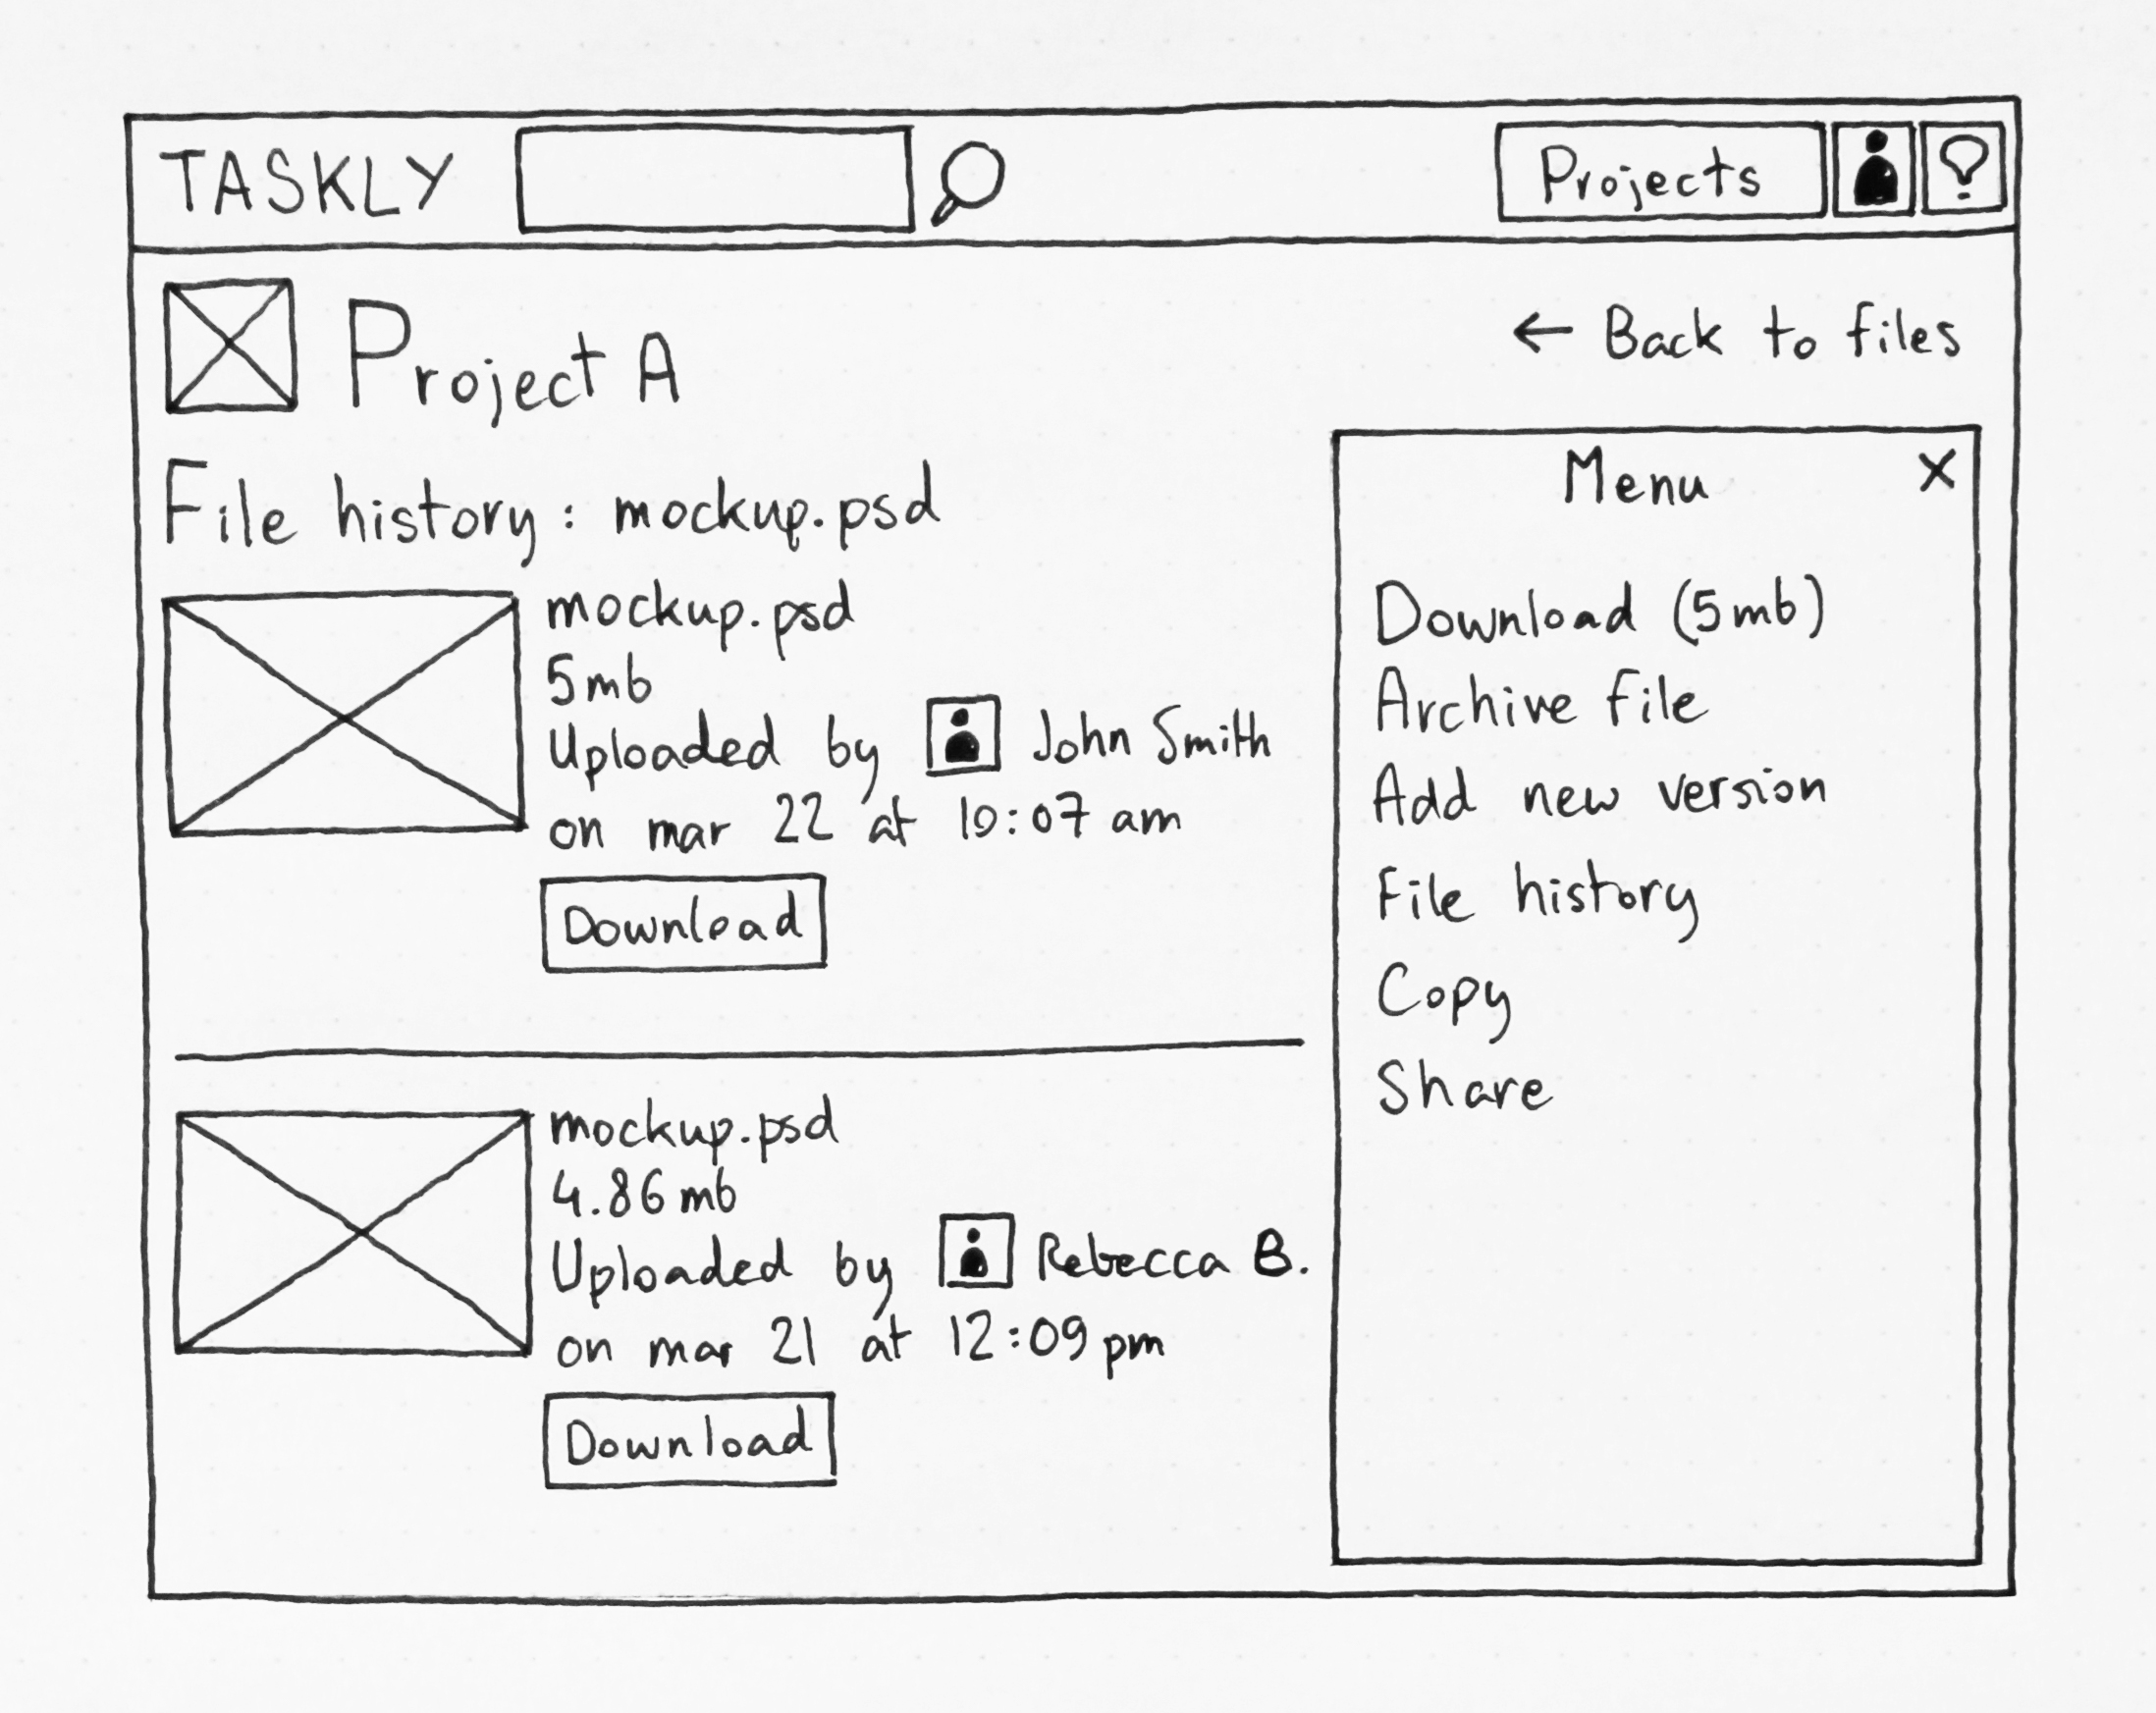 TASKLY
Projects
Project A
← Back to files
File history : mockup.psd
mockup.psd
5mb
Uploaded by John Smith
on mar 22 at 10:07 am
Download
mockup.psd
4.86 mb
Uploaded by Rebecca B.
on mar 21 at 12:09 pm
Download
Menu X
Download (5mb)
Archive file
Add new version
File history
Copy
Share